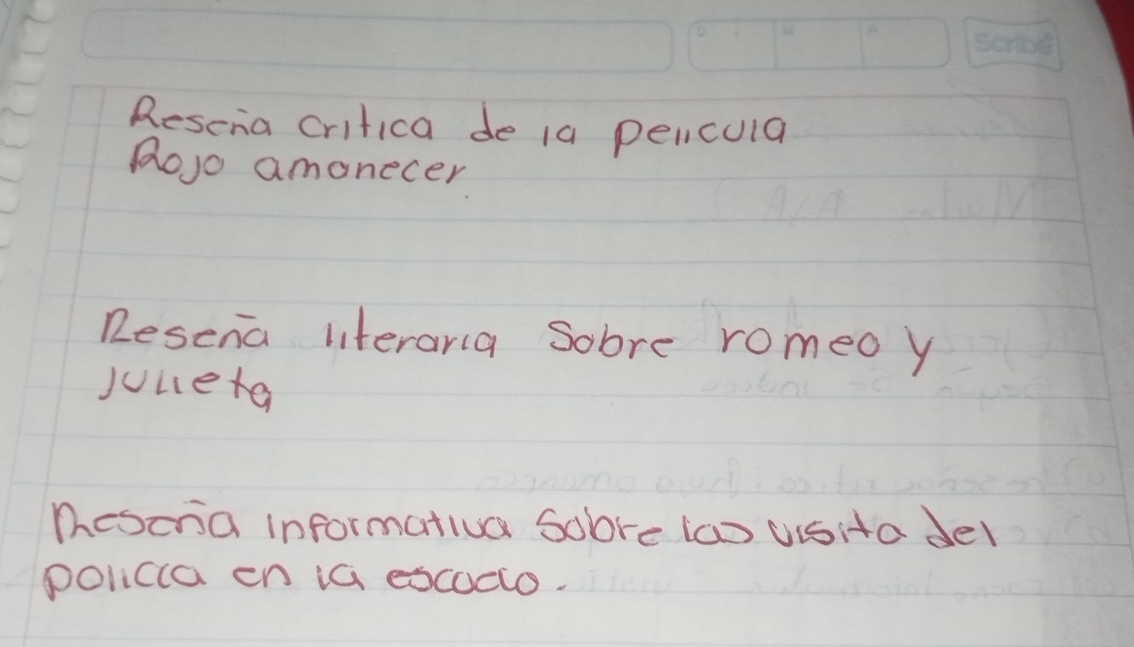 Scribe
Reseña critica de la pelicula
Rojo amanecer.
Reseña literaria sobre romeo y
julieta
Reseña informativa sobre las visita del
policia en la